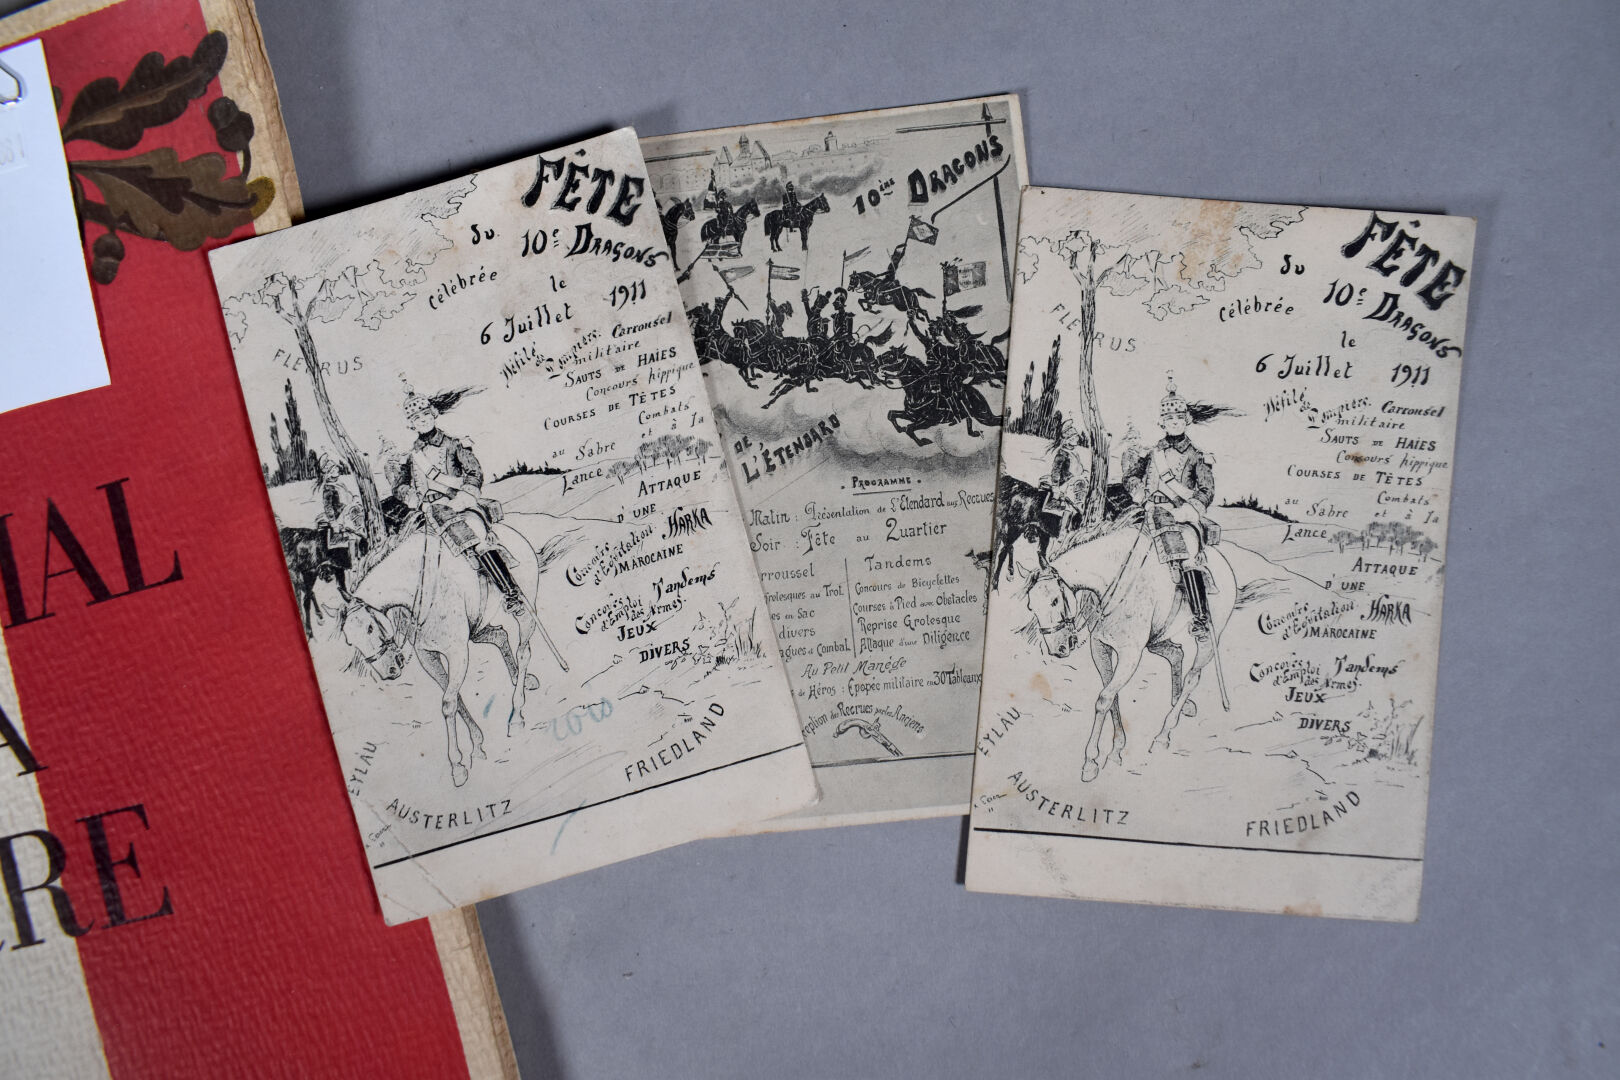 IAL
A
RE
FÊTE
du 10e DRAGONS
Célébrée le
6 Juillet 1911
Défilé de Pompiers. Carrousel
militaire
SAUTS DE HAIES
Concours hippique
COURSES DE TÊTES
Combats
au Sabre et à la
Lance
ATTAQUE
D'UNE
HARKA
MAROCAINE
Concours
d'Equitation.
Concours Tandems
d'Emploi
des Armes.
JEUX
DIVERS
FLEURUS
EYLAU
AUSTERLITZ
FRIEDLAND
10ème DRAGONS
DE
L'ÉTENDARD
. PROGRAMME .
Matin : Présentation de l'Etendard aux Recrues
Soir : Fête au Quartier
rroussel
rotesques au Trot
es en Sac
divers
agues et Combat
Tandems
Concours de Bicyclettes
Courses à Pied avec Obstacles
Reprise Grotesque
Attaque d'une Diligence
Au Petit Manège
s de Héros : Epopée militaire en 30 Tableaux
ception des Recrues par les Anciens
FÊTE
du 10e DRAGONS
Célébrée le
6 Juillet 1911
Défilé de Pompiers. Carrousel
militaire
SAUTS DE HAIES
Concours hippique
COURSES DE TÊTES
Combats
au Sabre et à la
Lance
ATTAQUE
D'UNE
HARKA
MAROCAINE
Concours
d'Equitation.
Concours Tandems
d'Emploi
des Armes.
JEUX
DIVERS
FLEURUS
EYLAU
AUSTERLITZ
FRIEDLAND